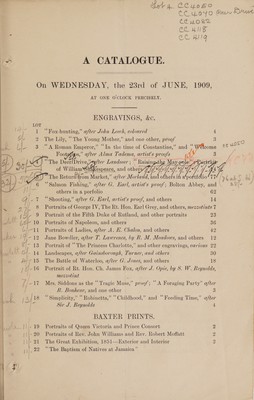 Lot 2 CC 4080
CC 4082
CC 4118
CC 4119
A CATALOGUE.
On WEDNESDAY, the 23rd of JUNE, 1909,
AT ONE O'CLOCK PRECISELY.
ENGRAVINGS, &c.
LOT
1 "Fox-hunting," after John Leech, coloured 4
2 The Lily, "The Young Mother," and one other, proof 3
3 "A Roman Emperor," "In the time of Constantine," and "Welcome
after Alma Tadema, artist's proofs 3
of William Shakespeare, and others
after Morland, and others in
6 "Salmon Fishing," after G. Earl, artist's proof; Bolton Abbey, and
others in a portfolio 62
7 "Shooting," after G. Earl, artist's proof, and others 14
8 Portraits of George IV, The Rt. Hon. Earl Grey, and others, mezzotint 7
9 Portrait of the Fifth Duke of Rutland, and other portraits 23
10 Portraits of Napoleon, and others 36
11 Portraits of Ladies, after J. E. Chalon, and others 42
12 Jane Bowdler, after T. Lawrence, by R. M. Meadows, and others 12
13 Portrait of "The Princess Charlotte," and other engravings, various 22
14 Landscapes, after Gainsborough, Turner, and others 30
15 The Battle of Waterloo, after G. Jones, and others 18
16 Portrait of Rt. Hon. Ch. James Fox, after J. Opie, by S. W. Reynolds,
mezzotint
17 Mrs. Siddons as the "Tragic Muse," proof; "A Foraging Party" after
R. Bonheur, and one other 3
18 "Simplicity," "Robinetta," "Childhood," and "Feeding Time," after
Sir J. Reynolds 4
BAXTER PRINTS.
19 Portraits of Queen Victoria and Prince Consort 2
20 Portraits of Rev. John Williams and Rev. Robert Moffatt 2
21 The Great Exhibition, 1851—Exterior and Interior 2
22 "The Baptism of Natives at Jamaica"